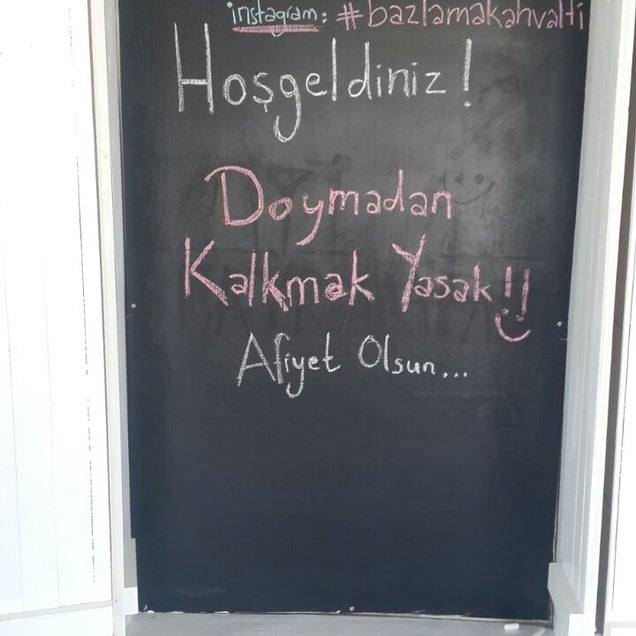 instagram: #bazlamakahvalti
Hoşgeldiniz!
Doymadan
Kalkmak Yasak!!
Afiyet Olsun...